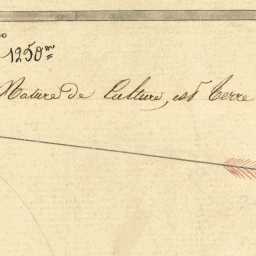 1250m
Nature de Culture, est Terre